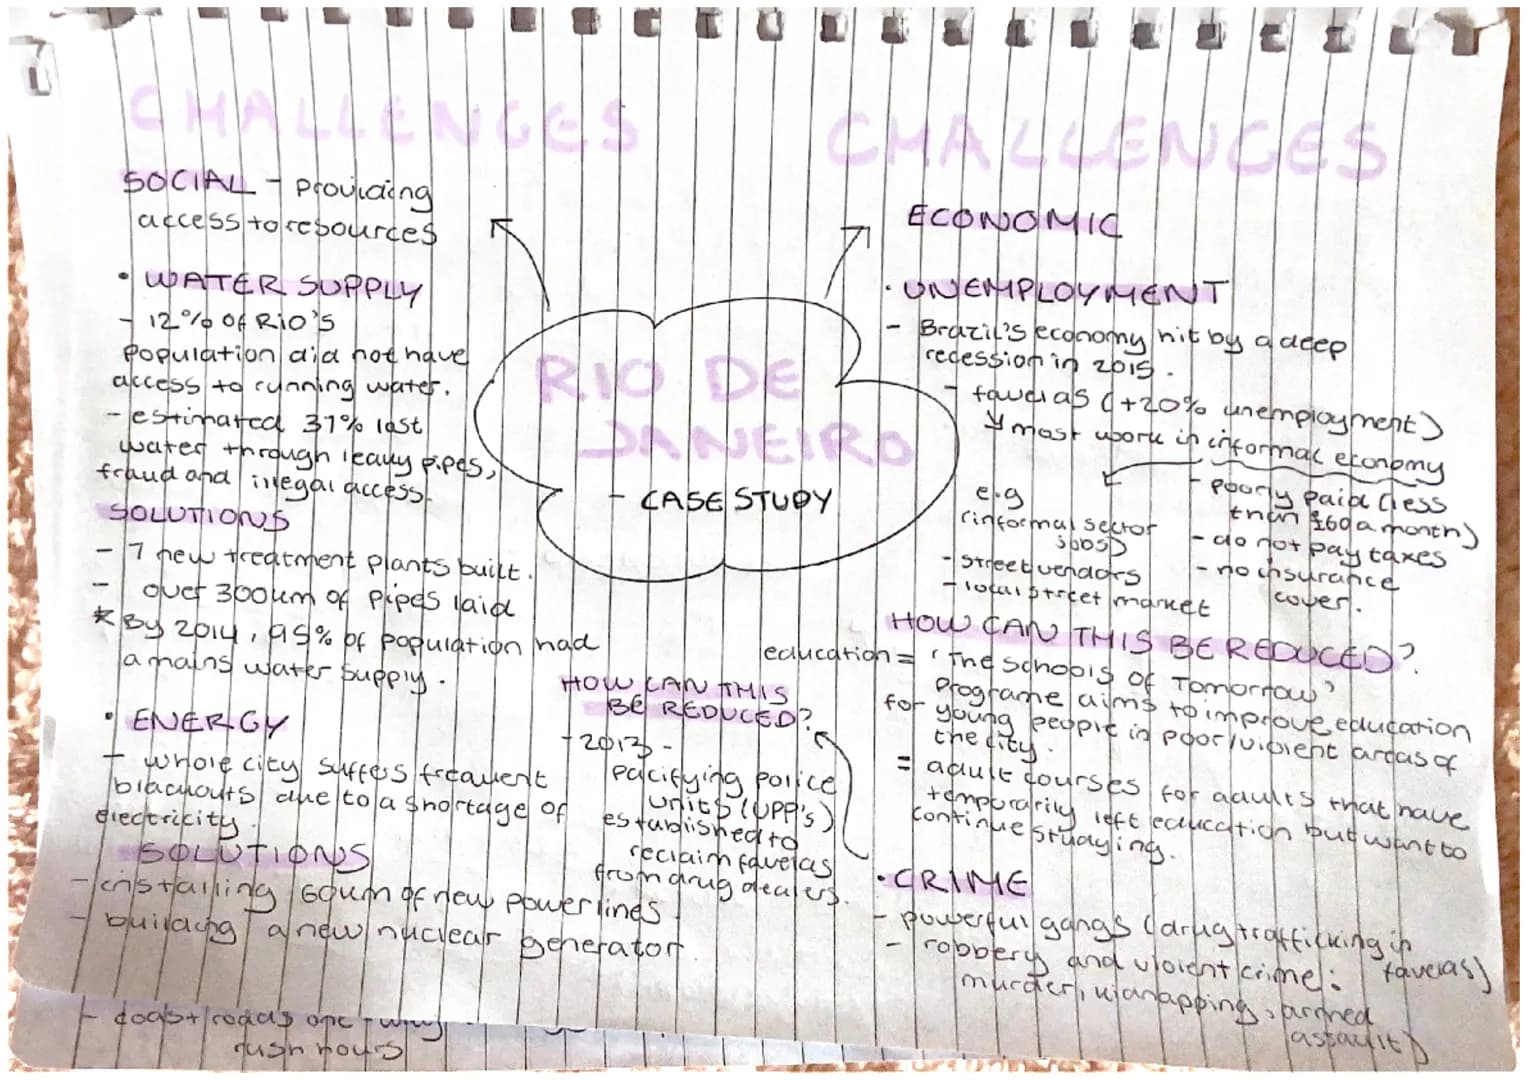 CHALLENGES
SOCIAL - providing
access to resources
• WATER SUPPLY
- 12% of RIO'S
population did not have
access to running water.
- estimated 37% lost
water through leaky pipes,
fraud and illegal access.
SOLUTIONS
- 7 new treatment plants built.
- over 300km of pipes laid
* By 2014, 95% of population had
a mains water supply.
• ENERGY
- whole city suffers frequent
blackouts due to a shortage of
electricity.
SOLUTIONS
- installing 60km of new power lines
- building a new nuclear generator
- coast roads one-way
rush hours
RIO DE
JANEIRO
- CASE STUDY
HOW CAN THIS
BE REDUCED?
- 2013 -
pacifying police
units (UPP's)
established to
reclaim favelas
from drug dealers.
CHALLENGES
ECONOMIC
• UNEMPLOYMENT
- Brazil's economy hit by a deep
recession in 2015.
- favelas (+20% unemployment)
most work in informal economy
- poorly paid (less
than £60 a month)
- do not pay taxes
- no insurance
cover.
e.g
(informal sector
jobs)
- street vendors
- local street market
HOW CAN THIS BE REDUCED?
education = 'The Schools of Tomorrow'
programe aims to improve education
for young people in poor/violent areas of
the city.
= adult courses for adults that have
temporarily left education but want to
continue studying.
• CRIME
- powerful gangs (drug trafficking in
favelas)
- robbery and violent crime:
murder, kidnapping, armed
assault)